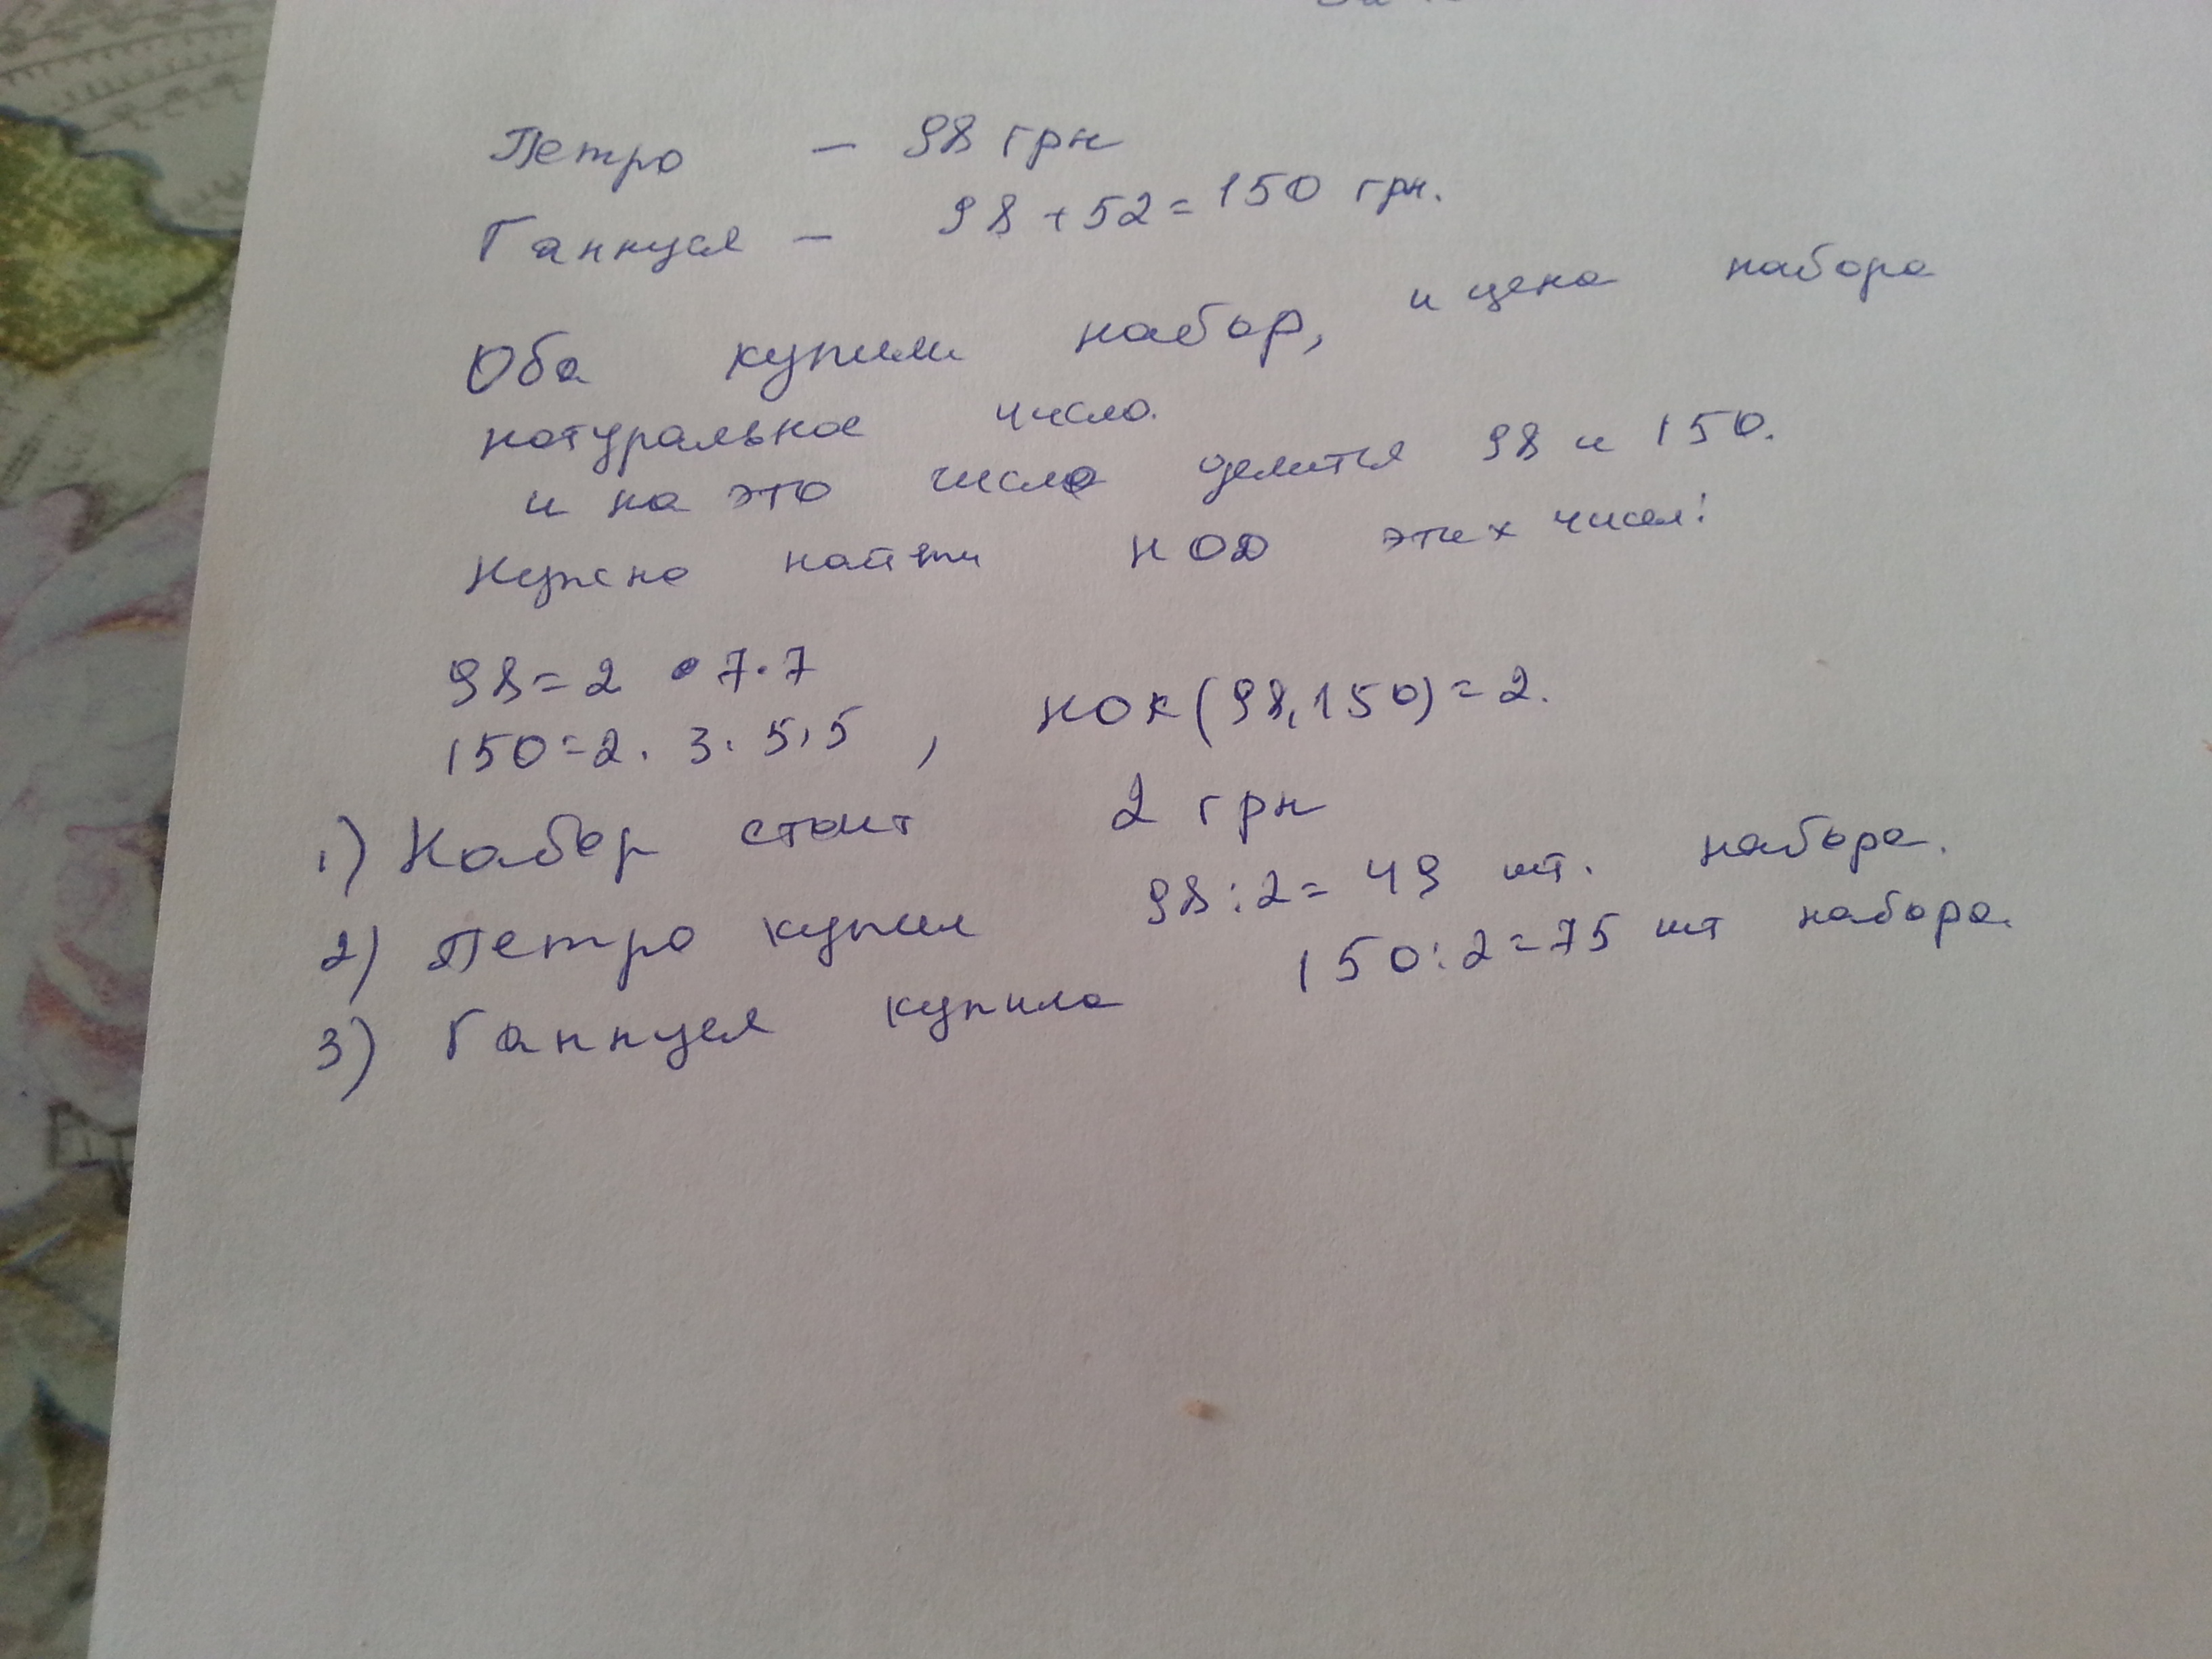 Петро — 98 грн
Ганнуся — 98 + 52 = 150 грн.
Оба купили набор, и цена набора
натуральное число.
и на это число делится 98 и 150.
Нужно найти НОД этих чисел!
98 = 2 · 7 · 7
150 = 2 · 3 · 5 · 5 , НОК (98, 150) = 2.
1) Набор стоит 2 грн
2) Петро купил 98 : 2 = 49 шт. набора.
3) Ганнуся купила 150 : 2 = 75 шт набора.